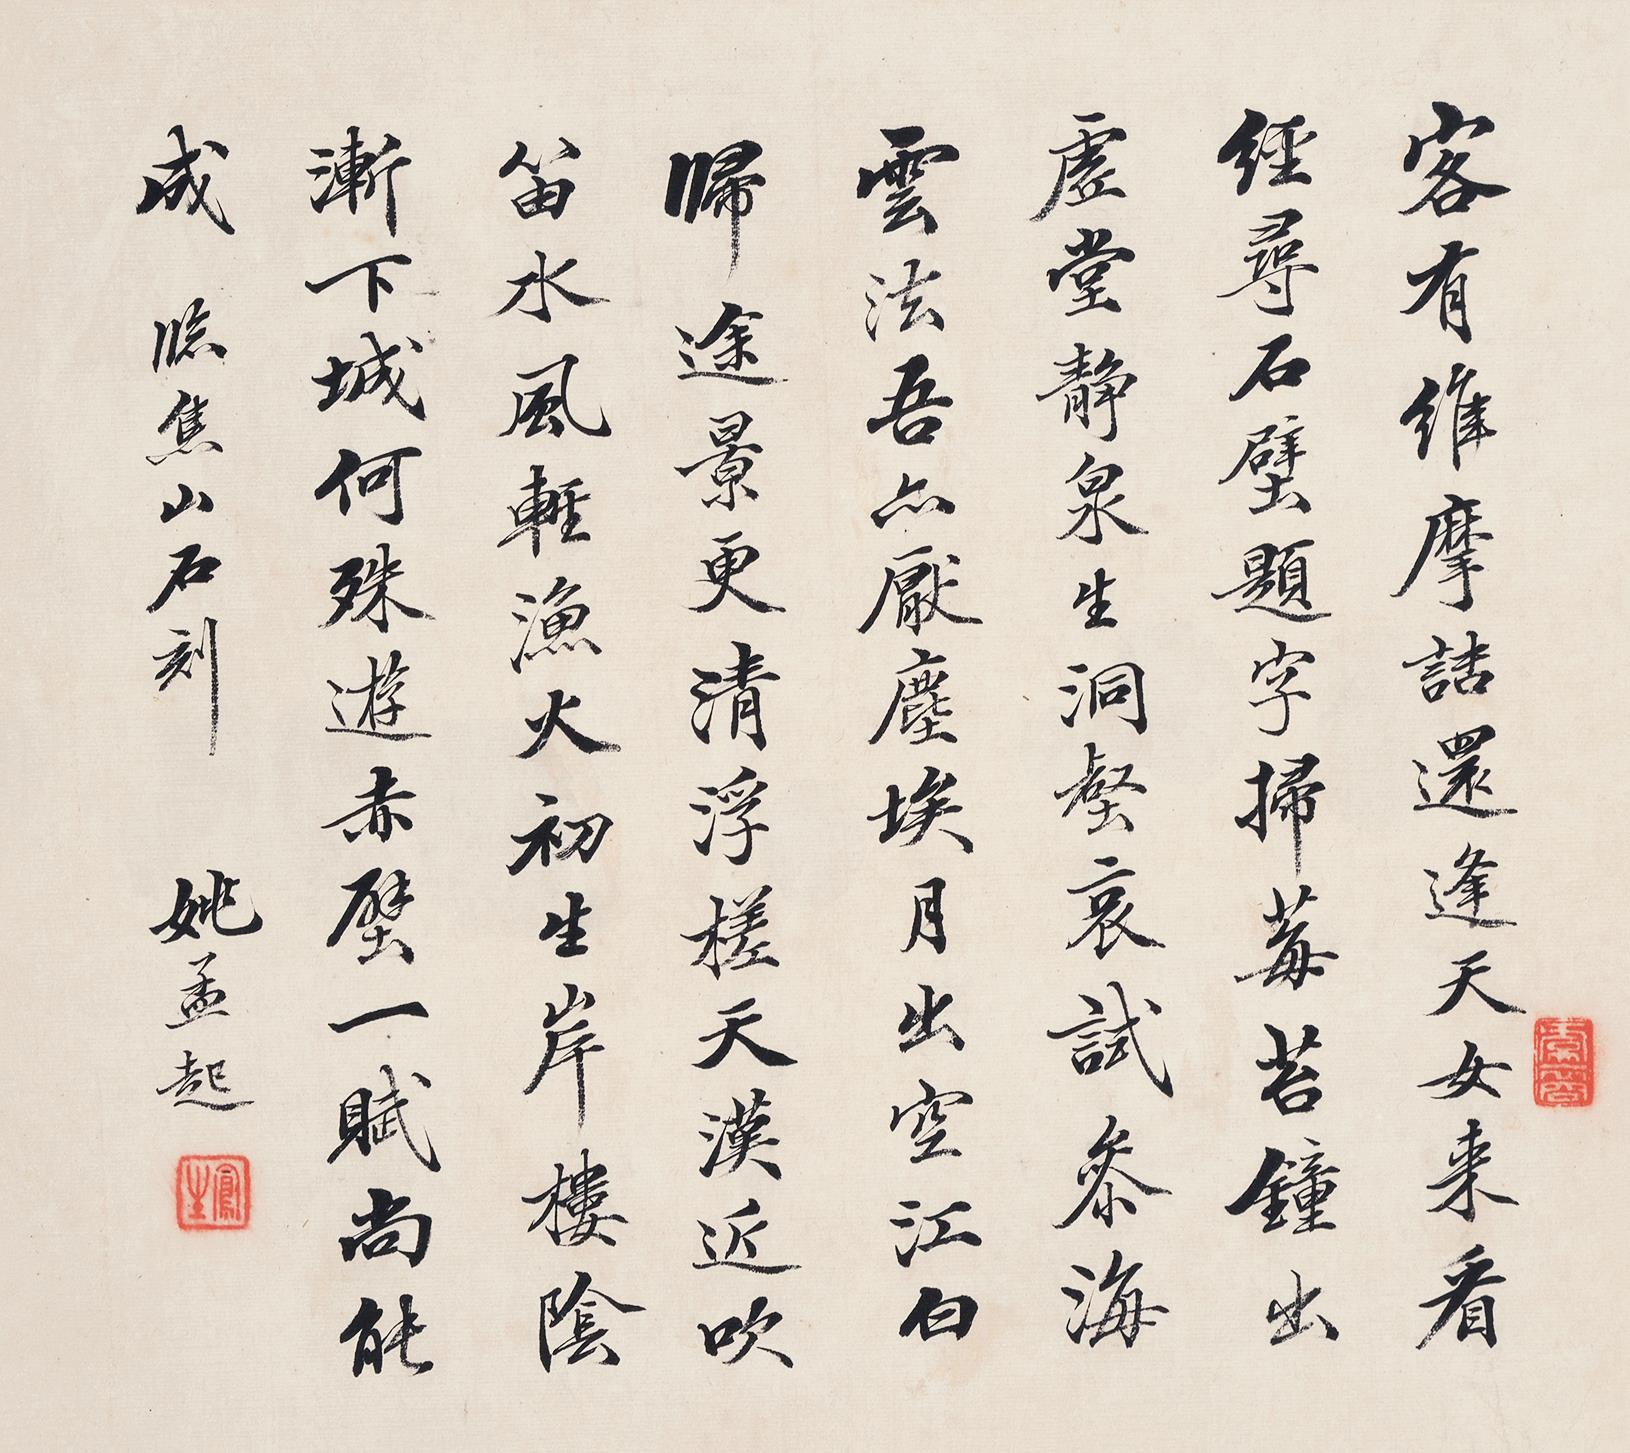 客有維摩詰還逢天女来看
經尋石壁題字掃莓苔鐘出
虚堂静泉生洞壑哀試参海
雲法吾亦厭塵埃月出空江白
歸途景更清浮槎天漢近吹
笛水風輕漁火初生岸樓陰
漸下城何殊遊赤壁一賦尚能
成 臨焦山石刻 姚孟起
鳳生